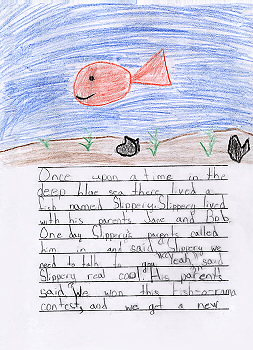 Once upon a time in the
deep blue sea there lived a
fish named Slippery. Slippery lived
with his parents Jane and Bob.
One day Slippery's parents called
him in and said "Slippery we
need to talk to you." "Yeah," said
Slippery real cool. His parents
said, "We won this fish-o-rama
contest, and we get a new